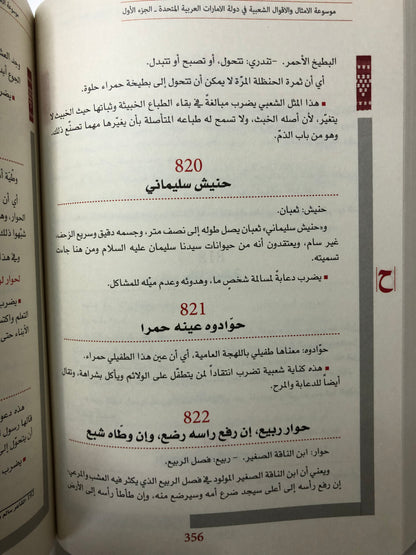 موسوعة الامثال والاقوال الشعبية في دولة الامارات العربية المتحدة ـ الجزء الأول
البطيخ الأحمر. - تندري: تتحول، أو تصبح أو تتبدل.
أي أن ثمرة الحنظلة المرّة لا يمكن أن تتحول إلى بطيخة حمراء حلوة.
■ هذا المثل الشعبي يضرب مبالغةً في بقاء الطباع الخبيثة وثباتها حيث الخبيث لا
يتغيّر، لأن أصله الخبث، ولا تسمح له طباعه المتأصلة بأن يغيّرها مهما تصنّع ذلك،
وهو من باب الذمّ.
820
حنيش سليماني
حنيش: ثعبان.
و«حنيش سليماني» ثعبان يصل طوله إلى نصف متر، وجسمه دقيق وسريع الزحف،
غير سام، ويعتقدون أنه من حيوانات سيدنا سليمان عليه السلام ومن هنا جاءت
تسميته.
■ يضرب دعابةً لمسالمة شخصٍ ما، وهدوئه وعدم ميّله للمشاكل.
821
حوّادوه عينه حمرا
حوّادوه: معناها طفيلي باللهجة العامية، أي أن عين هذا الطفيلي حمراء.
■ هذه كناية شعبية تضرب انتقاداً لمن يتطفّل على الولائم ويأكل بشراهة، وتقال
أيضاً للدعابة والمرح.
822
حوار ربيع، إن رفع راسه رضع، وان وطّاه شبع
حوار: ابن الناقة الصغير. - ربيع: فصل الربيع.
ويعني أن ابن الناقة الصغير المولود في فصل الربيع الذي يكثر فيه العشب والمرعى:
إن رفع رأسه إلى أعلى سيجد ضرع أمه وسيرضع منه، وإن طأطأ رأسه إلى الأرض
356
ح